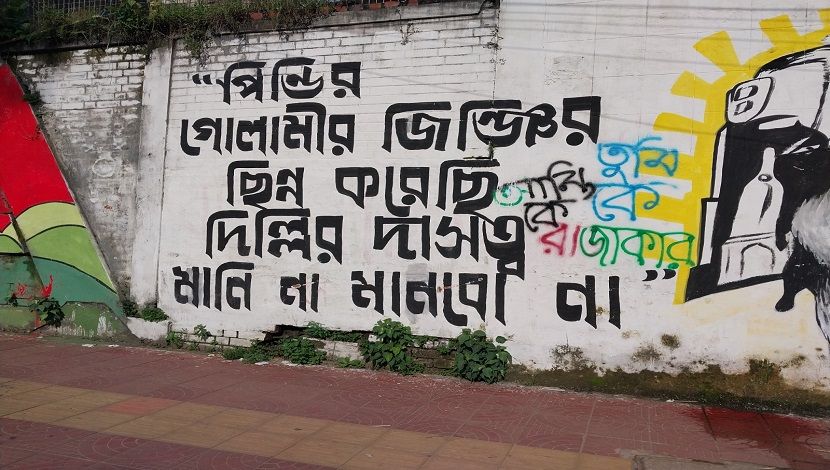 “পিন্ডির
গোলামীর জিঞ্জির
ছিন্ন করেছি
দিল্লির দাসত্ব
মানি না মানবো না”
তুমি
কে
আমি
কে
রাজাকার
B